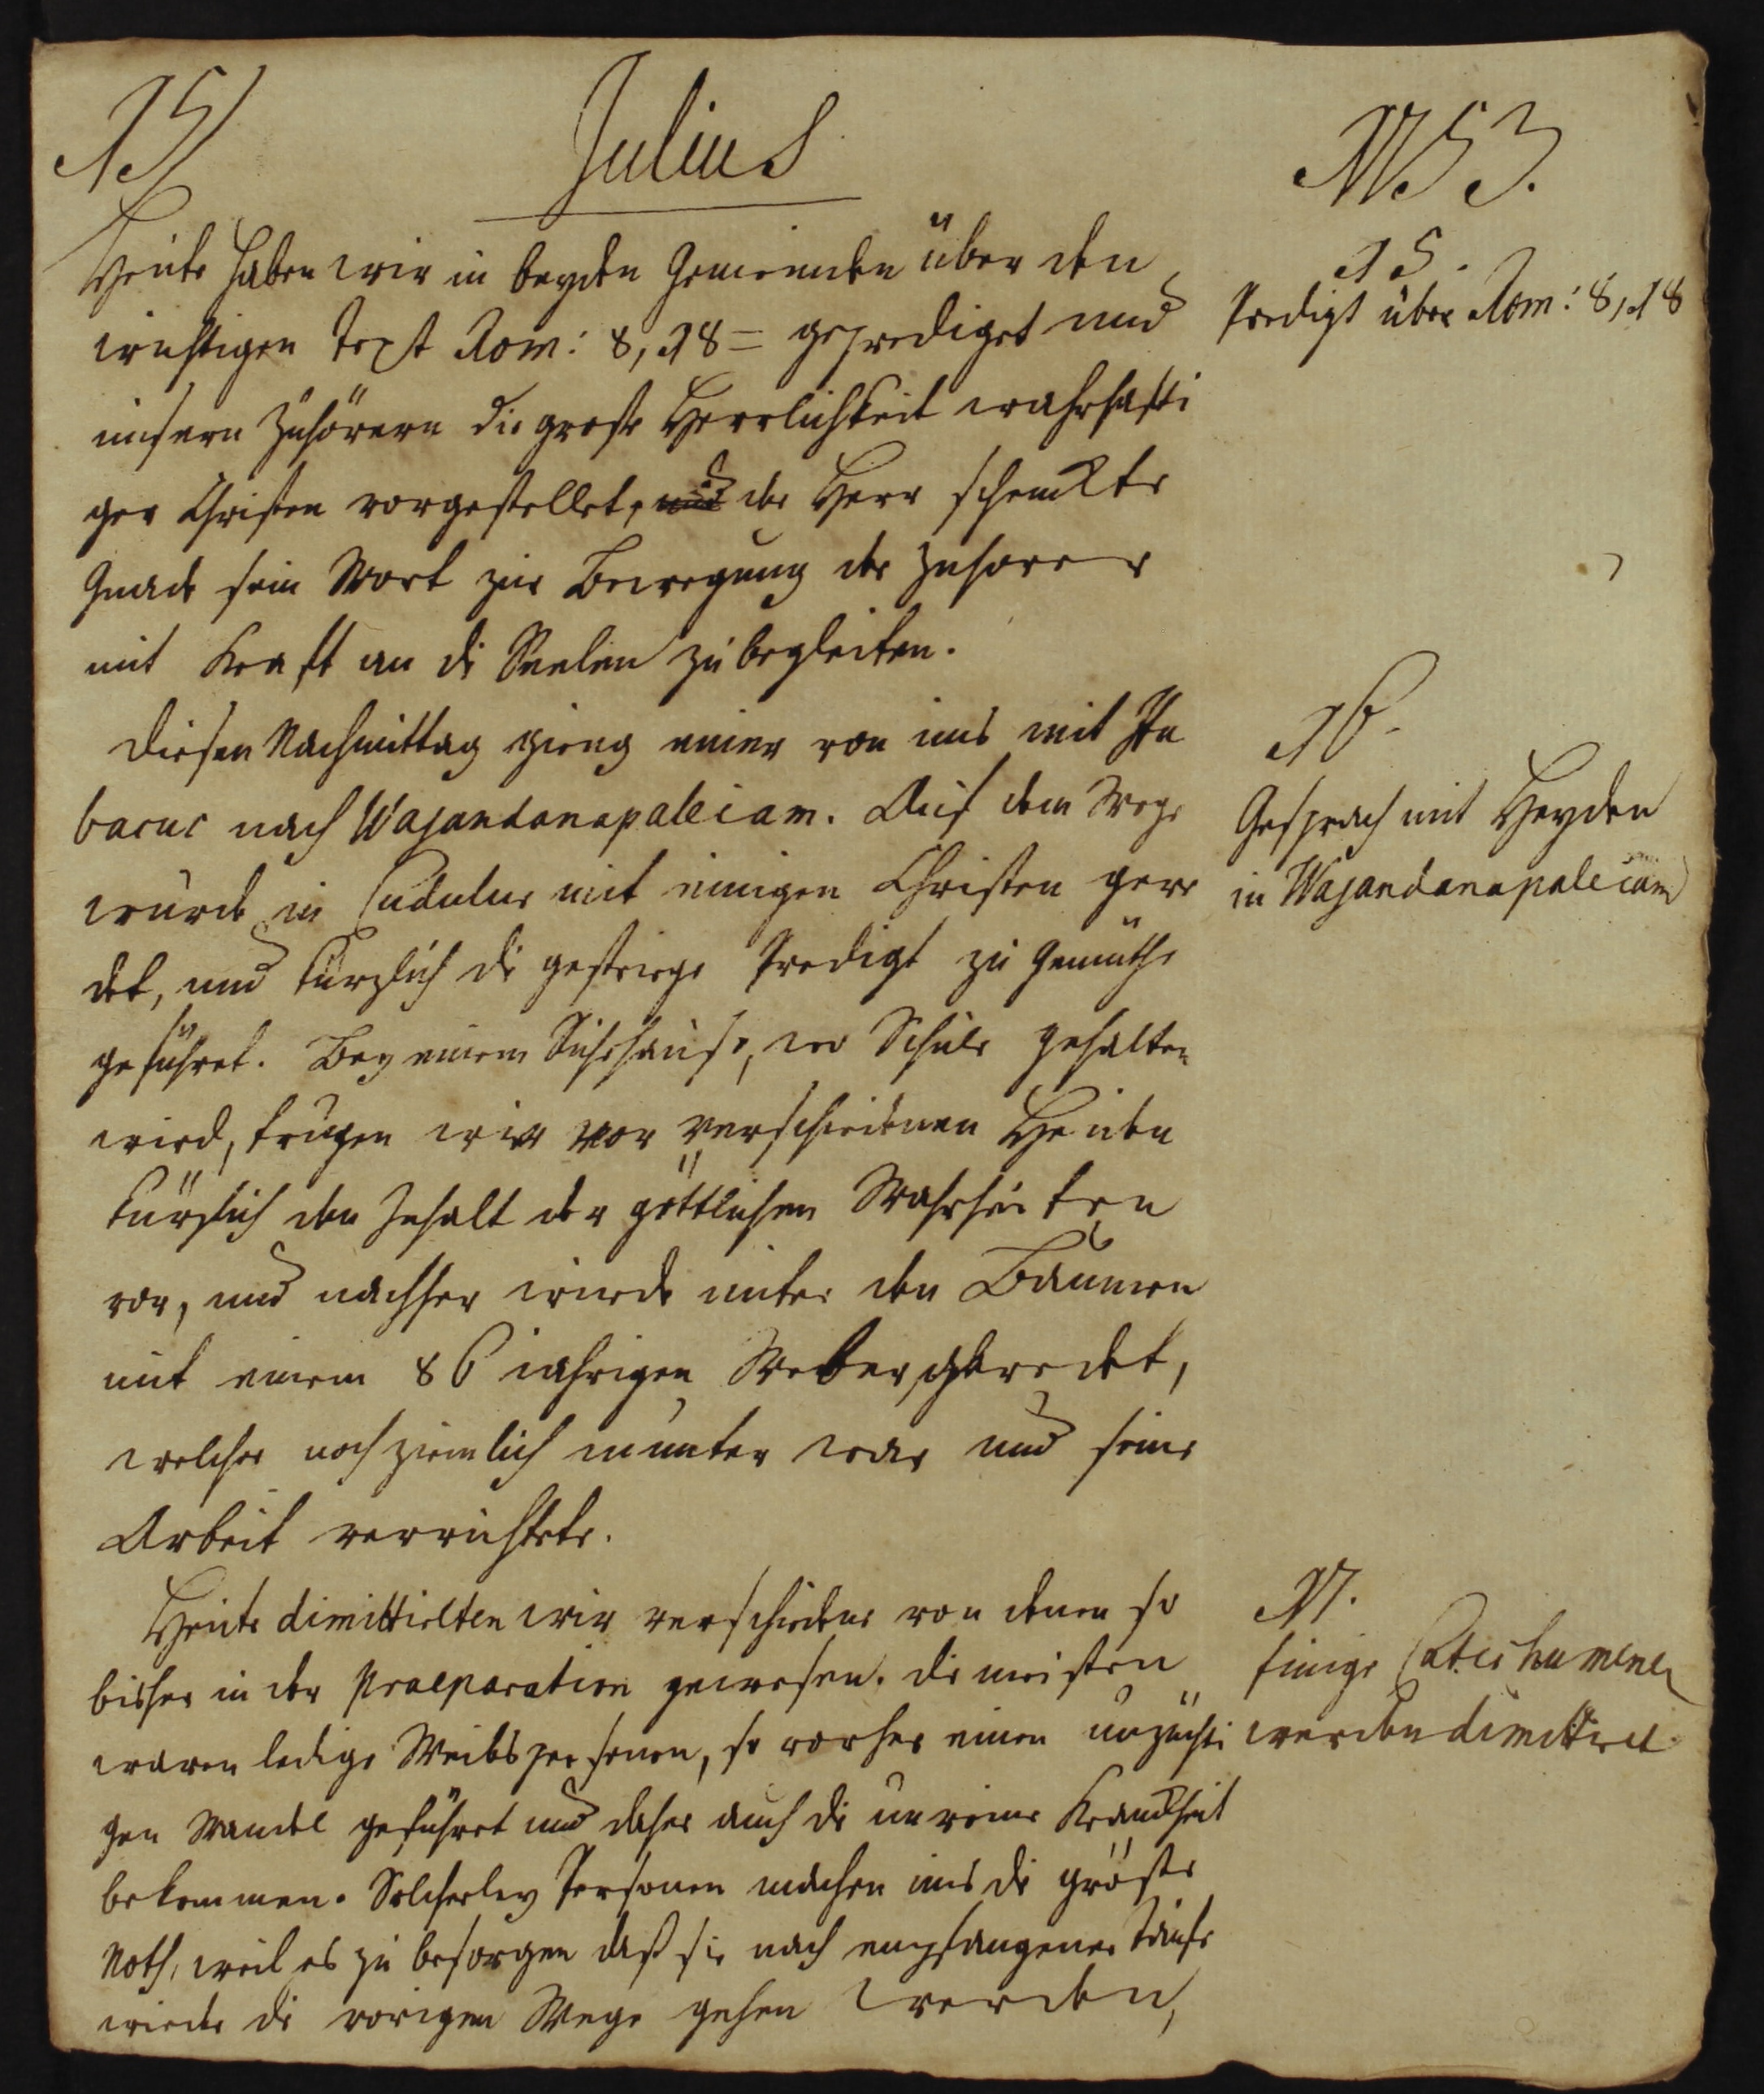 15/
Julius
1753.
Heute haben wir in beyden Gemeinden über den
wichtigen Text Rom: 8, 18= geprediget und
unsern Zuhörern die große Herrlichkeit wahrhafti
ger Christen vorgestellet, und der Herr schenckte
Gnade sein Wort zur Bewegung der Zuhörer
mit Kraft an die Seelen zu begleiten.
Diesen Nachmittag gieng einer von uns mit Ha
bacuc nach Wajandanapaleiam. Auf dem Wege
wurde in Cudulur mit einigen Christen gere
det, und kürzlich die gestrige Predigt zu Gemüthe
geführet. Bey einem Ruhehause, wo Schule gehalten
wird, trugen wir vor verschiedenen Heiden
kürzlich den Inhalt der göttlichen Wahrheiten
vor, und nachher wurde unter den Bäumen
mit einem 86 iährigen Weber geredet,
welcher noch ziemlich munter war und seine
Arbeit verrichtete.
Heute dimittirten wir verschiedene von denen so
bisher in der Praeparation gewesen. Die meisten
waren ledige Weibspersonen, so vorher einen unzüchti
gen Wandel geführet und daher auch die unreine Kranckheit
bekommen. Solcherley Personen machen uns die gröste
Noth, weil es zu besorgen daß sie nach empfangener Taufe
wieder die vorigen Wege gehen werden,
15.
Predigt über Rom: 8, 18
16.
Gespräch mit Heyden
in Wajandanapaleiam
17.
Einige Catechumenen
werden dimittiret.